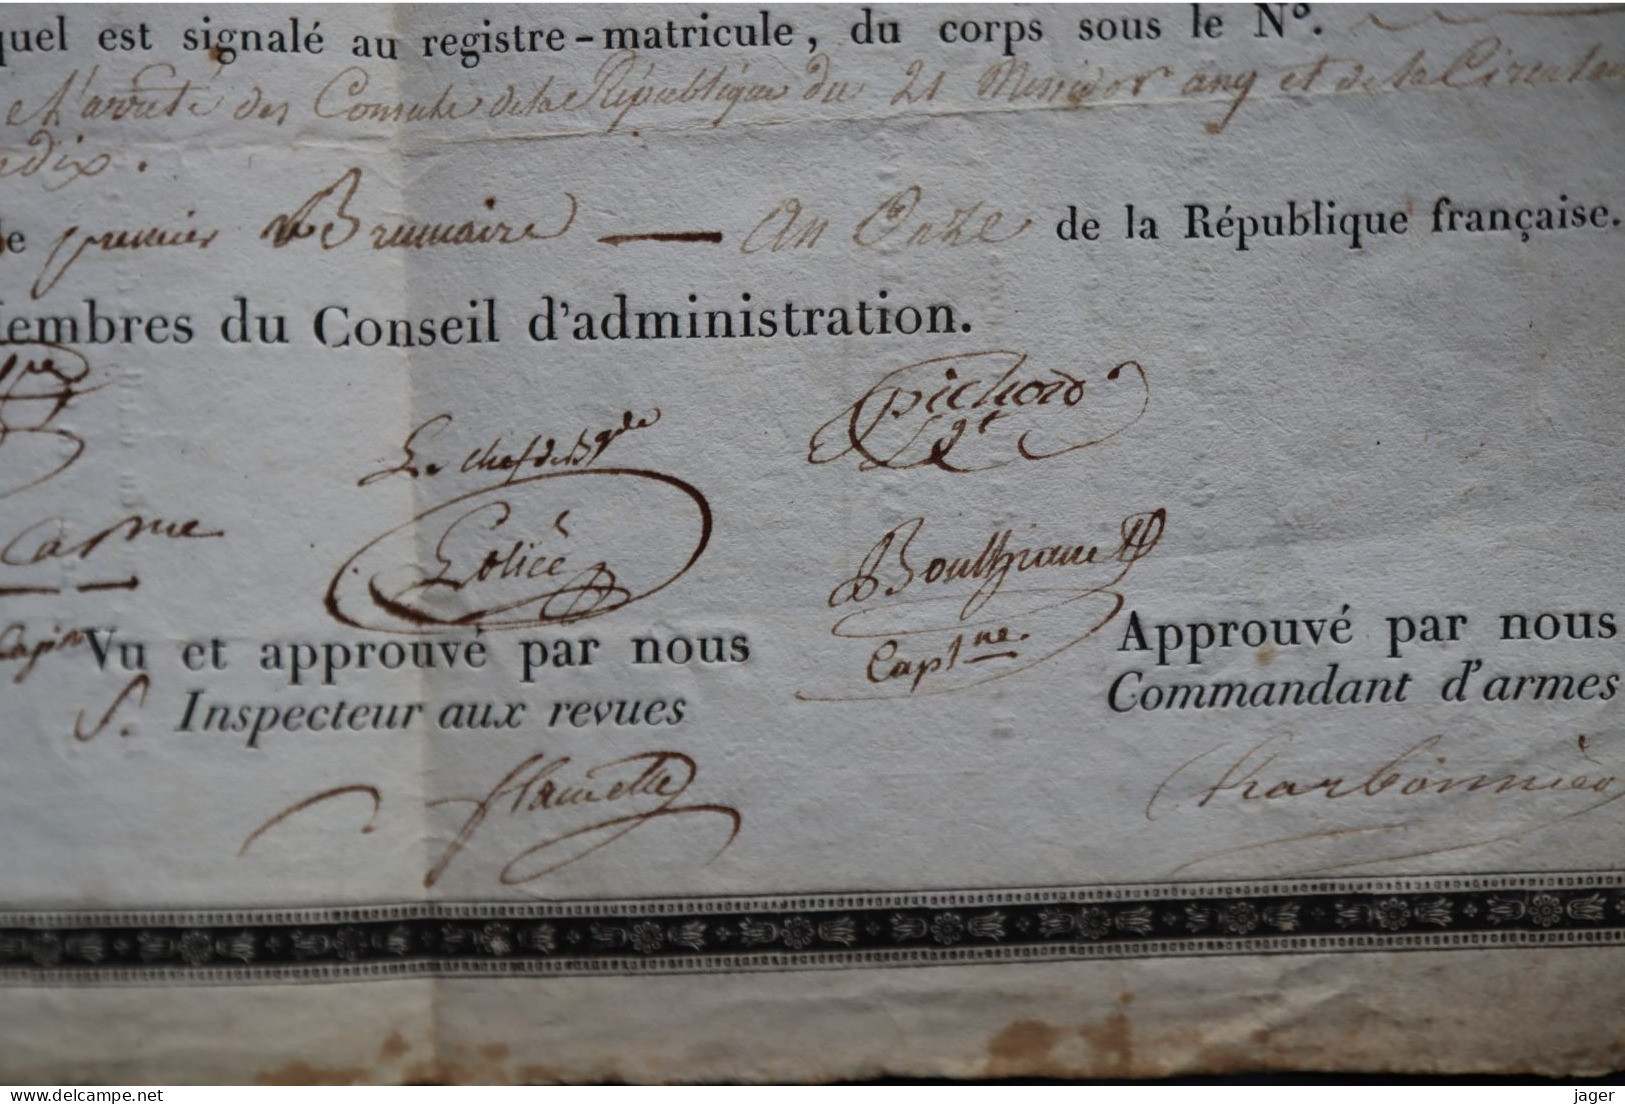 quel est signalé au registre-matricule, du corps sous le N°.
et l'arrêté des Consuls de la République du 21 Messidor an 9 et de la Circulai
dix.
le premier Brumaire — an Onze de la République française.
Membres du Conseil d'administration.
pre
Le chef de Bgde
pichard
Sgt
Capne
Police
Capne
Capt ne.
Vu et approuvé par nous
S. Inspecteur aux revues
Approuvé par nous
Commandant d'armes
Charbonnier
delcampe.net
jager